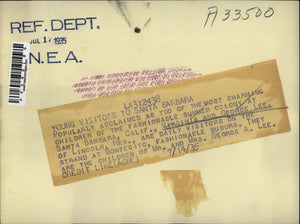 A33500
REF. DEPT.
JUL 17 1935
N.E.A.
LA312438
YOUNG VISITORS TO SANTA BARBARA
POPULARLY ACCLAIMED AS TWO OF THE MOST CHARMING
CHILDREN OF THE FASHIONABLE SUMMER COLONY AT
SANTA BARBARA, CALIF., AND GEORGE LEE,
OF LINCOLN, NEB., ARE DAILY VISITORS ON THE
STRAND AT MONTECITO, FASHIONABLE SUBURB. THEY
ARE THE CHILDREN OF MR. AND MRS. GEORGE A. LEE.
CREDIT LINE (ACME) 7/14/35